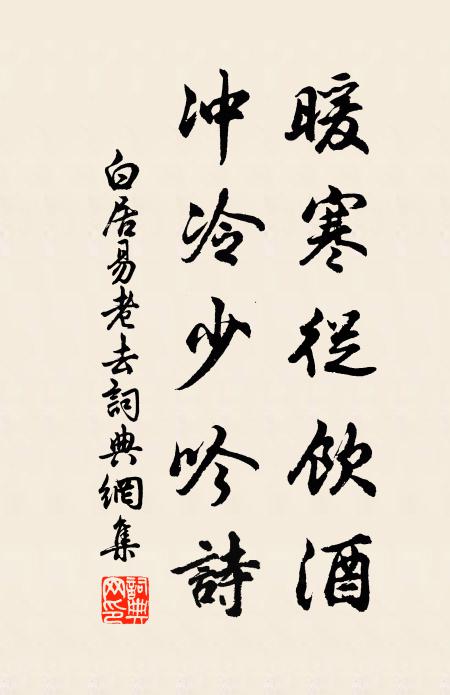 暖寒從飲酒
冲冷少吟詩
白居易老去詞典網集
詞典網印